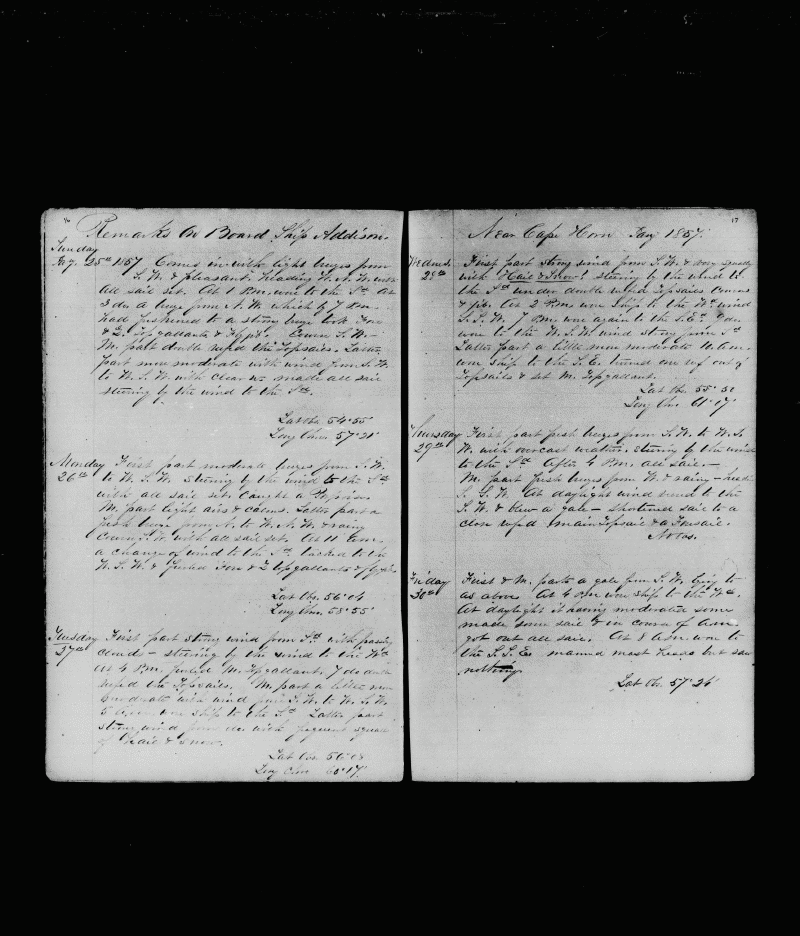 16
Remarks On Board Ship Addison.
Sunday
25th 1857 Comes in with light breezes from
S. W. & pleasant. Heading W. N. W. with
all sail set. At 1 P.m. wore to the Sd At
3 do a breeze from N. W. which by 7 P.m.
had freshened to a strong breeze took Fore
& Topgallants & Courses S. W.
M. part double reefed the Topsails. Latter
part more moderate with wind from S. W.
to W. S. W. with clear made all sail
steering by the wind to the Sd.
Lat Obs. 54°55
Long Chro. 57°21'
Monday
26th
First part moderate breezes from S. W.
to W. S. W. steering by the wind to the Sd
with all sail set. Caught a Porpoise.
M. part light airs & calms. Latter part a
fresh breeze from N. to W. N. W. & rainy
Course S. W. with all sail set. At 11 A.m.
a change of wind to the Sd tacked to the
W. S. W. & furled Fore & Topgallants &
Lat Obs 56°04
Long Chro. 58°55'
Tuesday
27th
First part strong wind from Sd with passing
clouds - steering by the wind to the Wd
At 4 P.m. furled M. Topgallant. 7 do double
reefed the Topsails. M. part a little more
moderate with wind from S. W. to W. S. W.
wore ship to the Sd Latter part
strong wind from with frequent squalls
of hail & snow.
Lat Obs. 56°
Long Chro 60°17'
17
Near Cape Horn Jany 1857.
Wednes.
28th
First part strong wind from S. W. & very squally
with Hail & Snow! steering by the wind to
the Sd under double reefed Topsails courses
& jib. At 2 P.m. wore Ship to the Wd wind
S. S. W. 7 P.m. wore again to the S.Ed.
wore to the W. S. W. wind strong from Sd
Latter part a little more moderate 10 A.m.
wore ship to the S. E. turned one reef out of
Topsails & set M. Topgallant.
Lat Obs. 55°51
Long Chro. 61°17'
Thursday
29th
First part fresh breezes from S. W. to W. S.
W. with overcast weather. steering by the wind
to the Sd After 4 P.m. all sail.
M. part fresh breezes from W. & rainy - headed
S. S. W. At daylight wind hauled to the
S. W. & blew a gale - shortened sail to a
close reefed main Topsail & a Foresail.
No Obs.
Friday
30th
First & M. parts a gale from S. W. lying to
as above At 4 P.m wore ship to the Wd.
At daylight it having moderated some
made some sail & in course of A.m
got out all sail. At 8 A.m. wore to
the S.S.E. manned mast heads but saw
nothing.
Lat Obs. 57°26'